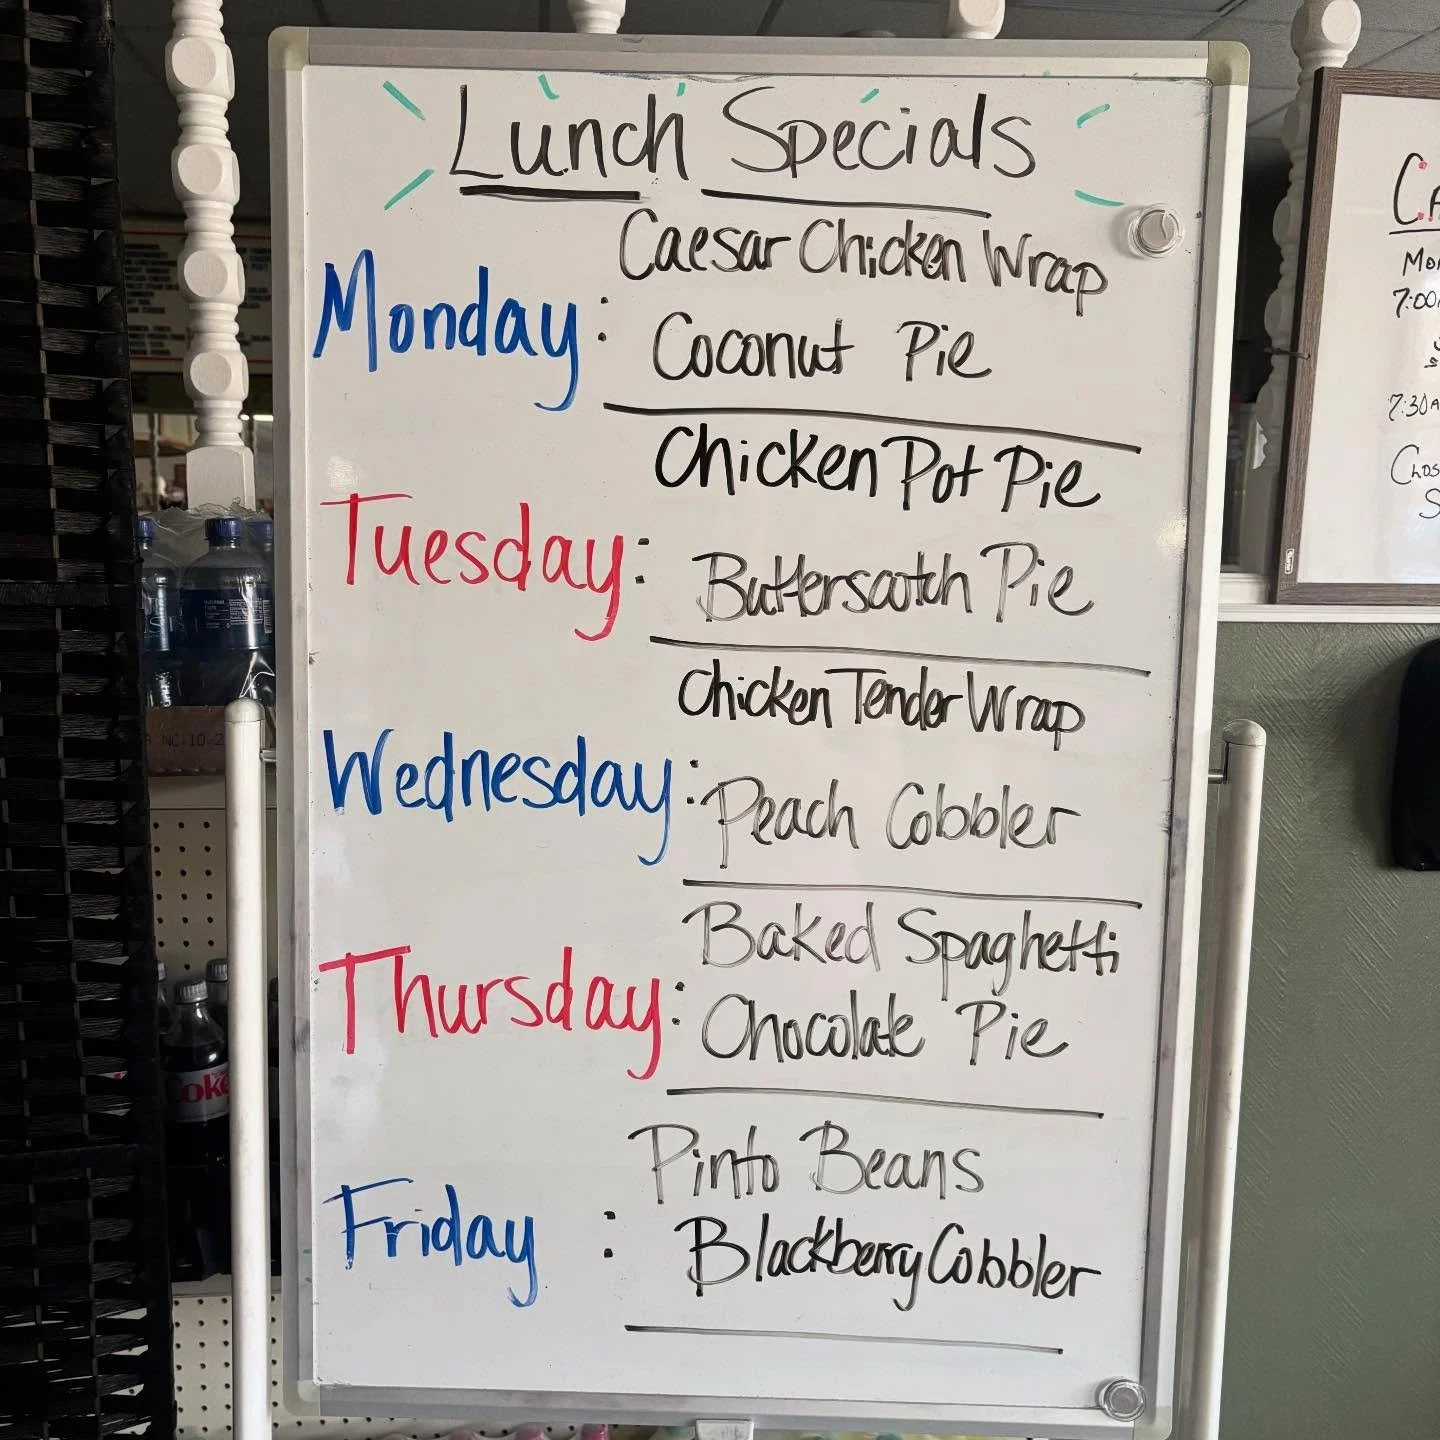 Lunch Specials
Monday: Caesar Chicken Wrap
Coconut Pie
Tuesday: Chicken Pot Pie
Butterscotch Pie
Wednesday: Chicken Tender Wrap
Peach Cobbler
Thursday: Baked Spaghetti
Chocolate Pie
Friday: Pinto Beans
Blackberry Cobbler
7:00
7:30A
Coke
NC:10-2